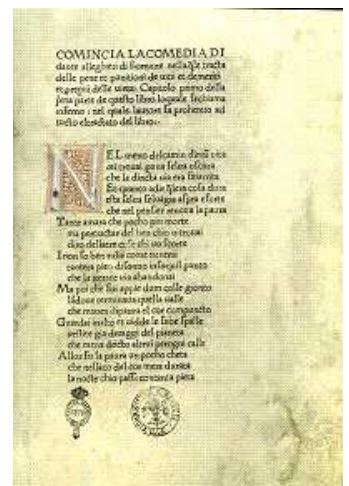 COMINCIA LA COMEDIA DI
dante alleghieri di fiorenze nella q̃le tracta
delle pene et punitioni de uitii et demeriti
et premii delle uirtu: Capitolo primo della
p̃ma parte de questo libro loquale sechiama
inferno: nel quale lautore fa prohemio ad
tucto eltractato del libro:
NEL mezo delcamin dinr̃a uita
mi trouai una selua oscura
che la diricta uia era smarrita
Et quanto adir q̃lera cosa dura
esta selua seluagia aspra eforte
che nel pensier renoua la paura
Tante amara che pocho piu morte
ma pertractar del ben chio uitrouai
diro dellaltre cose chi uo scorte
I non so ben ridir come uentrai
tantera pien disonno insuquel punto
che la uerace uia abandonai
Ma poi che fui appie dum colle gionto
ladoue terminaua quella ualle
che mauea dipaura el cor compuncto
Guardai inalto et uidde le sue spalle
uestite gia deraggi del pianeta
che mena dricto altrui perogni calle
Allor fu la paura un pocho cheta
che nellaco del cor mera durata
la nocte chio passai contanta pieta